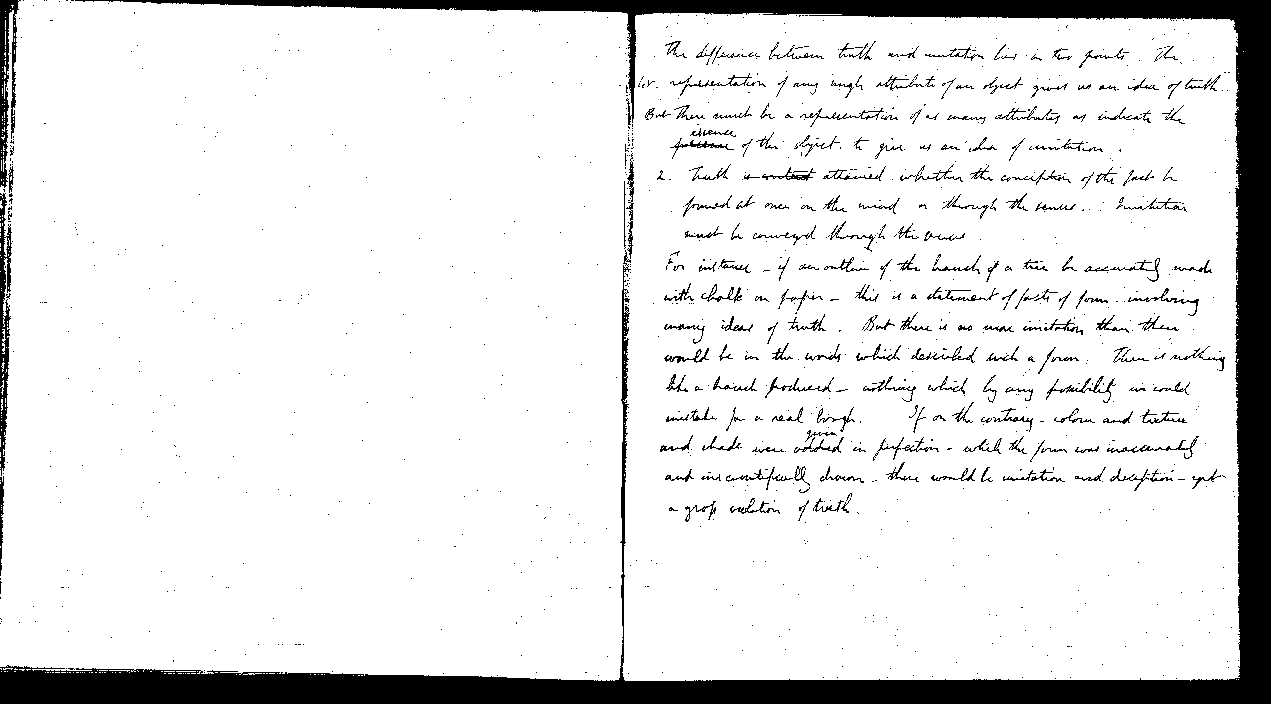 The difference between truth and imitation lies in two points. The
1st. representation of any single attribute of an object gives us an idea of truth
But there must be a representation of as many attributes as indicate the
essence
of the object. to give us an idea of imitation.
2. Truth is attained whether the conception of the fact be
formed at once on the mind or through the senses. Imitation
must be conveyed through the senses
For instance - if an outline of the branch of a tree be accurately made
with chalk on paper - this is a statement of facts of form. involving
many ideas of truth. But there is no more imitation than there
would be in the words which described such a form. There is nothing
like a branch produced - nothing which by any possibility we could
mistake for a real bough. If on the contrary - colour and texture
given
and shade were added in perfection - while the form was inaccurately
and unscientifically drawn. there would be imitation and deception - yet
a gross violation of truth.